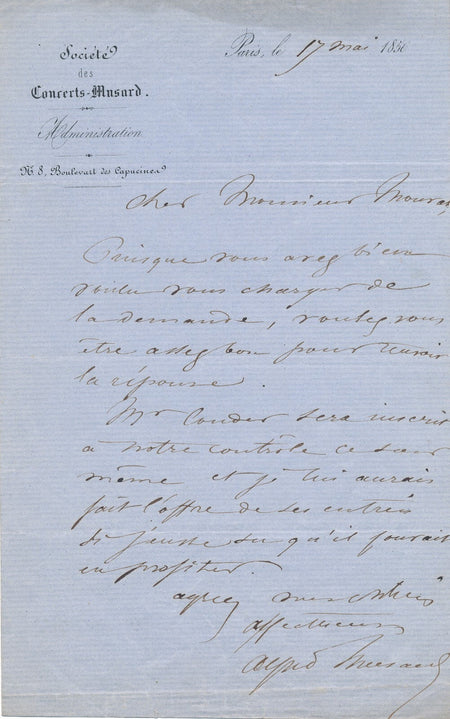 Société
des
Concerts-Musard.
Administration
N. 8, Boulevart des Capucines
Paris, le 17 mai 185
cher Monsieur
Puisque vous avez bien
voulu vous charger de
la demande, voulez vous
être assez bon pour
la réponse.
Mr Couder sera inscrit
à notre contrôle ce soir
même et je lui aurais
fait l'offre de ses entrées
si j'eusse su qu'il pourait
en profiter.
agréez mes
affectueux
alfred Musard